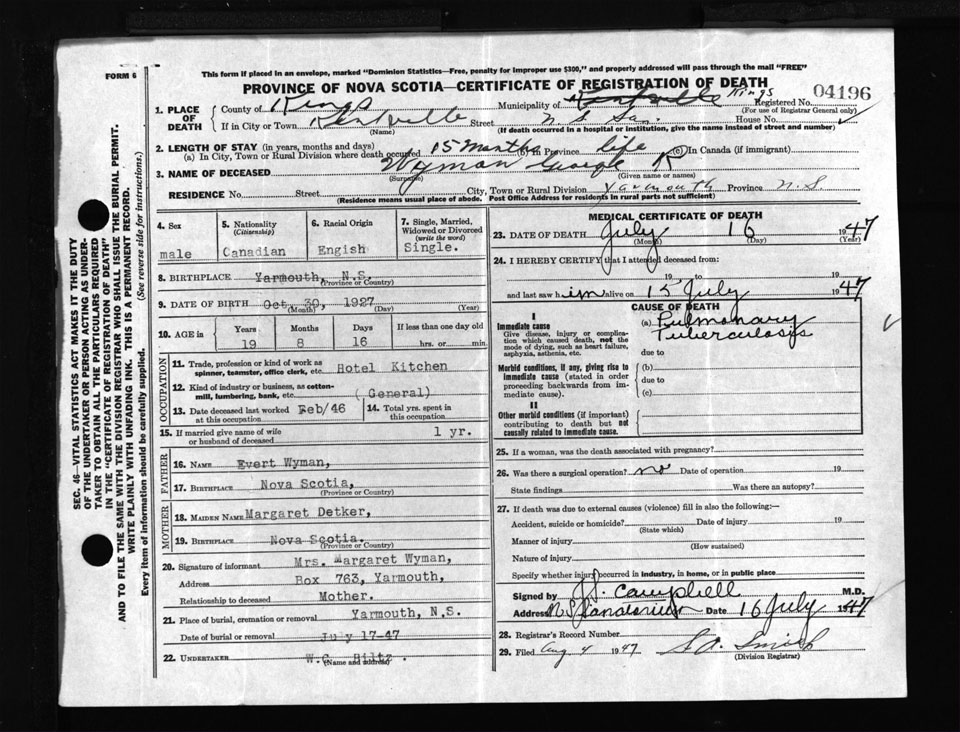 FORM 6
This form if placed in an envelope, marked "Dominion Statistics—Free, penalty for improper use $300," and properly addressed will pass through the mail "FREE"
PROVINCE OF NOVA SCOTIA—CERTIFICATE OF REGISTRATION OF DEATH
04196
1. PLACE OF DEATH
County of Kings Municipality of Kentville Kings Registered No.
(For use of Registrar General only)
If in City or Town Kentville Street N. S. San. House No.
(Name) (If death occurred in a hospital or institution, give the name instead of street and number)
2. LENGTH OF STAY (in years, months and days)
(a) In City, Town or Rural Division where death occured 15 Months (b) In Province life (c) In Canada (if immigrant)
3. NAME OF DECEASED Wyman George R
(Surname) (Given name or names)
RESIDENCE No. Street City, Town or Rural Division Yarmouth Province N.S
(Residence means usual place of abode. Post Office Address for residents in rural parts not sufficient)
4. Sex male
5. Nationality (Citizenship) Canadian
6. Racial Origin Engish
7. Single, Married, Widowed or Divorced (write the word) Single.
8. BIRTHPLACE Yarmouth, N.S.
(Province or Country)
9. DATE OF BIRTH Oct. 30, 1927
(Month) (Day) (Year)
10. AGE in Years Months Days If less than one day old
19 8 16 hrs. or min.
OCCUPATION
11. Trade, profession or kind of work as spinner, teamster, office clerk, etc. Hotel Kitchen
12. Kind of industry or business, as cotton-mill, lumbering, bank, etc. ( General)
13. Date deceased last worked at this occupation Feb/46
14. Total yrs. spent in this occupation
1 yr.
15. If married give name of wife or husband of deceased
FATHER
16. NAME Evert Wyman,
17. BIRTHPLACE Nova Scotia,
(Province or Country)
MOTHER
18. MAIDEN NAME Margaret Detker,
19. BIRTHPLACE Nova Scotia.
(Province or Country)
20. Signature of informant Mrs. Margaret Wyman,
Address Box 763, Yarmouth,
Relationship to deceased Mother.
21. Place of burial, cremation or removal Yarmouth, N.S.
Date of burial or removal July 17-47
22. UNDERTAKER W.C. Hiltz.
(Name and address)
MEDICAL CERTIFICATE OF DEATH
23. DATE OF DEATH July 16 1947
(Month) (Day) (Year)
24. I HEREBY CERTIFY that I attended deceased from:
19 to 19
and last saw him alive on 15 July 1947
CAUSE OF DEATH
I
Immediate cause
Give disease, injury or complication which caused death, not the mode of dying, such as heart failure, asphyxia, asthenia, etc.
(a) Pulmonary Tuberculosis
due to
Morbid conditions, if any, giving rise to immediate cause (stated in order proceeding backwards from immediate cause).
(b)
due to
(c)
II
Other morbid conditions (if important) contributing to death but not causally related to immediate cause.
25. If a woman, was the death associated with pregnancy?
26. Was there a surgical operation? no Date of operation 19
State findings Was there an autopsy?
27. If death was due to external causes (violence) fill in also the following:—
Accident, suicide or homicide? Date of injury 19
(State which)
Manner of injury
(How sustained)
Nature of injury
Specify whether injury occurred in industry, in home, or in public place
Signed by J.J. Campbell M.D.
Address N S Sanatorium Date 16 July 1947
28. Registrar's Record Number
29. Filed Aug 4 1947 S A. Smith
(Division Registrar)
SEC. 46—VITAL STATISTICS ACT MAKES IT THE DUTY
OF THE UNDERTAKER OR PERSON ACTING AS UNDER-
TAKER TO OBTAIN ALL THE PARTICULARS REQUIRED
IN THE "CERTIFICATE OF REGISTRATION OF DEATH"
AND TO FILE THE SAME WITH THE DIVISION REGISTRAR WHO SHALL ISSUE THE BURIAL PERMIT.
WRITE PLAINLY WITH UNFADING INK. THIS IS A PERMANENT RECORD.
Every item of information should be carefully supplied. (See reverse side for instructions.)